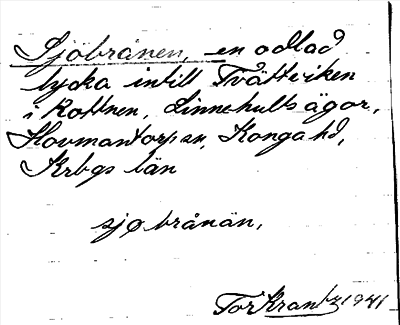 Sjöbrånen, en odlad
lycka intill Tvättviken
i Rottnen, Linnehults ägor,
Hovmantorp sn, Konga hd,
Krbgs län
sjøbrånän,
Tor Krantz 1941